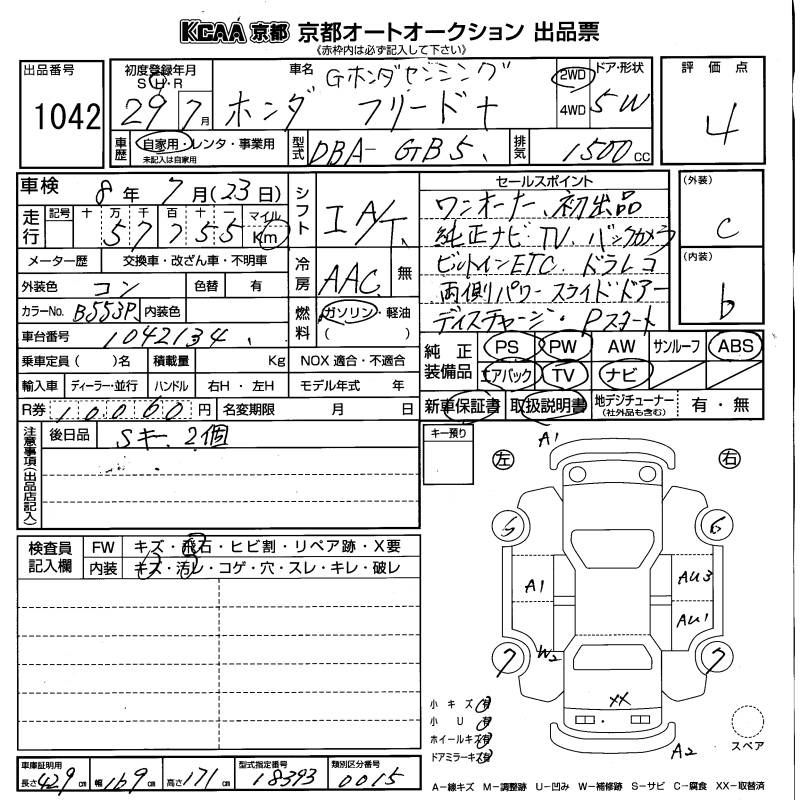 KCAA 京都 京都オートオークション 出品票
《赤枠内は必ず記入して下さい》
出品番号
1042
初度登録年月
S・H・R
29年7月
車名
Gホンダセンシング
ホンダ フリード+
2WD
4WD
ドア・形状
5W
評価点
4
車歴
自家用・レンタ・事業用
未記入は自家用
型式
DBA-GB5
排気
1500cc
車検
8年7月(23日)
走行
記号 十 万 千 百 十 一 マイル
57755 Km
シフト
IA/T
メーター歴 交換車・改ざん車・不明車
冷房
AAC 無
外装色 コン 色替 有
カラーNo. B553P 内装色
燃料
ガソリン・軽油
( )
車台番号 1042134
乗車定員( )名 積載量 Kg NOX 適合・不適合
輸入車 ディーラー・並行 ハンドル 右H・左H モデル年式 年
R券 10060円 名変期限 月 日
セールスポイント
ワンオーナー、初出品
純正ナビ TV. バックカメラ
ビルトインETC. ドラレコ
両側パワースライドドアー
ディスチャージ・Pスタート
(外装)
C
(内装)
b
純正装備品
PS PW AW サンルーフ ABS
エアバック TV ナビ
新車保証書 取扱説明書 地デジチューナー 有・無
(社外品も含む)
注意事項(出品店記入)
後日品 Sキー 2個
キー預り
検査員記入欄
FW キズ・飛石・ヒビ割・リペア跡・X要
内装 キズ・汚レ・コゲ・穴・スレ・キレ・破レ
A1
左 右
5 6
A1 AU3
AU1
7 W2 7
XX
A2
小キズ 有
小U 有
ホイールキズ 有
ドアミラーキズ 有
スペア
車庫証明用
長さ429cm 幅169cm 高さ171cm
型式指定番号
18393
類別区分番号
0015
A−線キズ M−調整跡 U−凹み W−補修跡 S−サビ C−腐食 XX−取替済